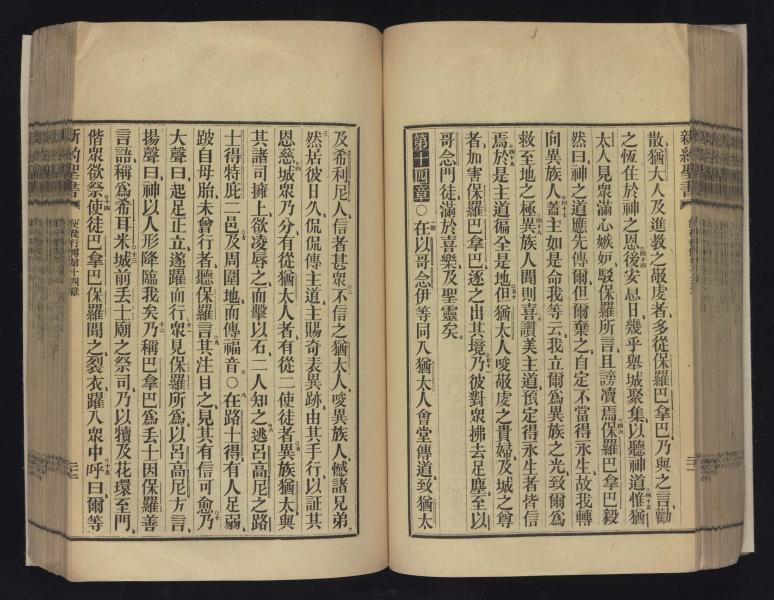 散猶太人及進教之敬虔者多從保羅巴拿巴乃與之言勸
之恆住於神之恩後安息日幾乎舉城聚集以聽神道惟猶
太人見眾滿心嫉妒駁保羅所言且謗瀆焉保羅巴拿巴毅
然曰神之道應先傳爾但爾棄之自定不當得永生故我轉
向異族人蓋主如是命我等云我立爾為異族之光致爾為
救至地之極異族人聞則喜讚美主道預定得永生者皆信
焉於是主道徧全是地但猶太人唆敬虔之貴婦及城之尊
者加害保羅巴拿巴逐之出其境乃彼對眾拂去足塵至以
哥念門徒滿於喜樂及聖靈矣
第十四章○在以哥念伊等同入猶太人會堂傳道致猶太
新約聖書
及希利尼人信者甚眾不信之猶太人唆異族人憾諸兄弟
然居彼日久侃侃傳主道主賜奇表異跡由其手行以証其
恩慈城眾乃分有從猶太人者有從二使徒者異族猶太與
其諸司擁上欲凌辱之而擊以石二人知之逃呂高尼之路
士得特庇二邑及周圍地而傳福音○在路士得有人足弱
跛自母胎未曾行者聽保羅言其注目之見其有信可愈乃
大聲曰起足正立遂躍而行眾見保羅所為以呂高尼方言
揚聲曰神以人形降臨我矣乃稱巴拿巴為丟士因保羅善
言語稱為希耳米城前丟士廟之祭司乃以犢及花環至門
偕眾欲祭使徒巴拿巴保羅聞之裂衣躍入眾中呼曰爾等
新約聖書 使徒行傳第十四章